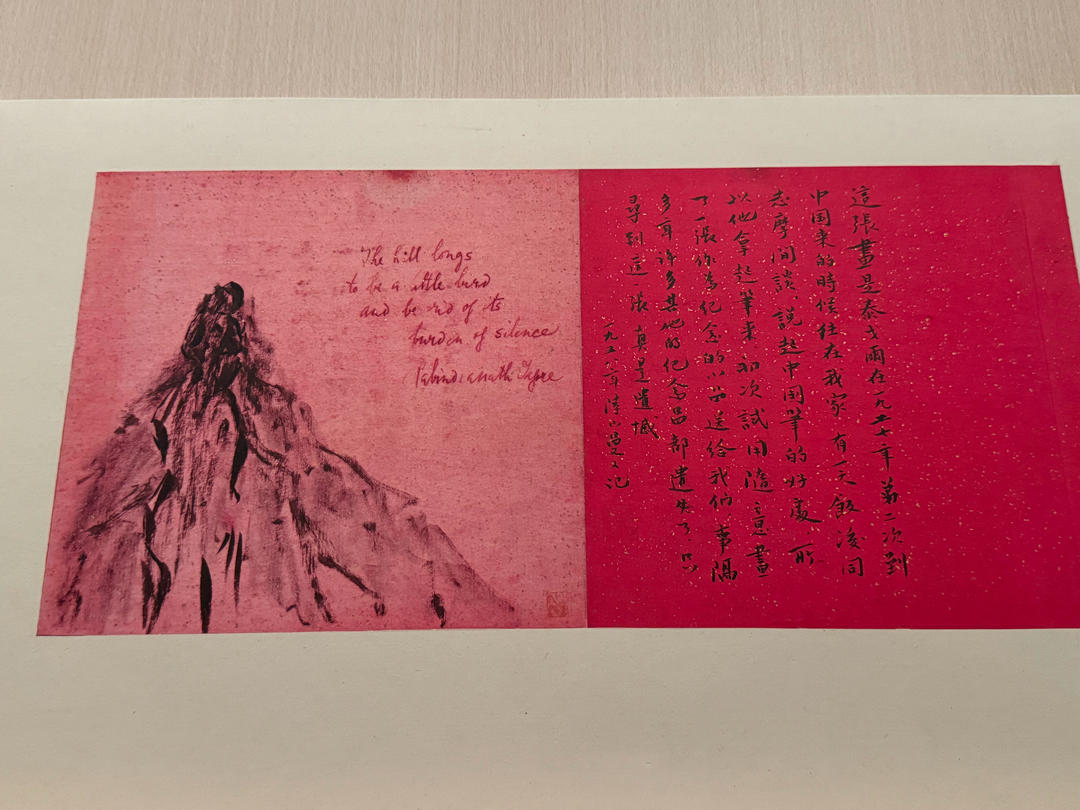 The hill longs
to be a little bird
and be rid of its
burden of silence
Rabindranath Tagore
這張畫是泰戈爾在一九二七年第二次到
中国來的時候住在我家 有一天飯後同
志摩閒談、說起中国筆的好處、所
以他拿起筆來、初次試用隨意畫
了一張作為纪念的小品送給我们、事隔
多年許多其他的纪念品都遺失了、只
尋到這一張真是遺憾
一九五 年 陸小曼 记